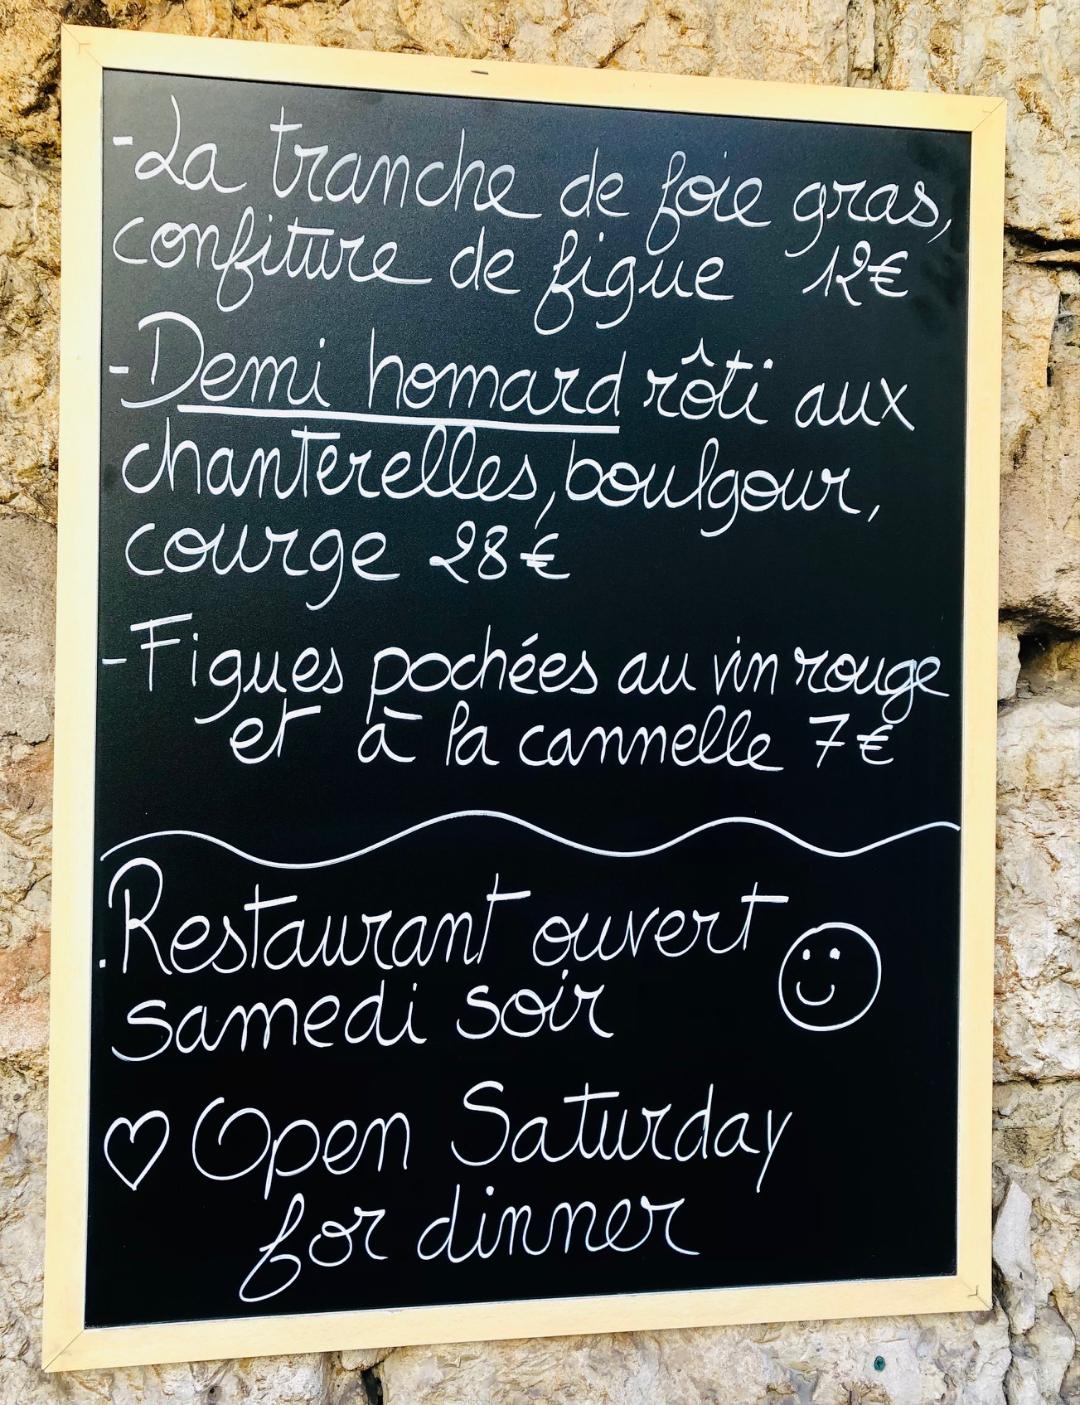 -La tranche de foie gras,
confiture de figue 12€
-Demi homard rôti aux
chanterelles, boulgour,
courge 28€
-Figues pochées au vin rouge
et à la cannelle 7€
.Restaurant ouvert
samedi soir
Open Saturday
for dinner